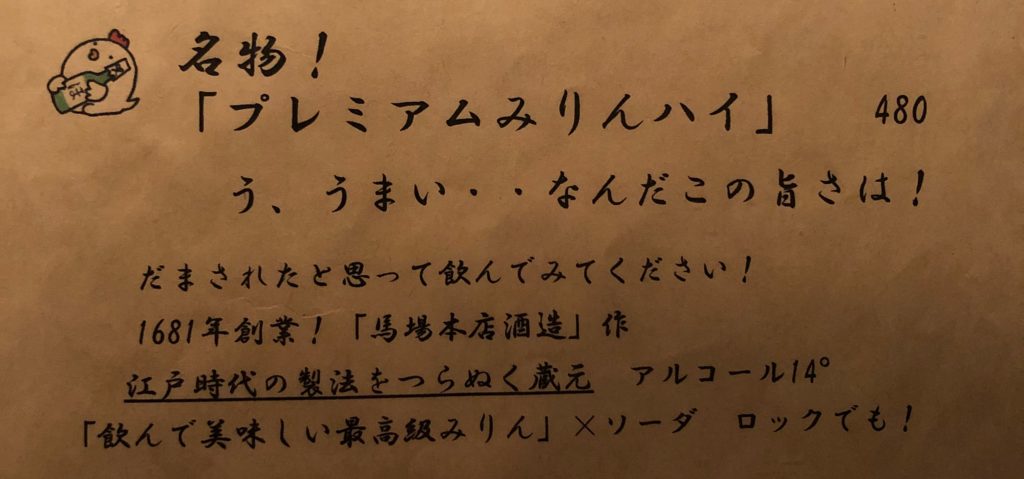 名物！
「プレミアムみりんハイ」 480
う、うまい・・なんだこの旨さは！
だまされたと思って飲んでみてください！
1681年創業！「馬場本店酒造」作
江戸時代の製法をつらぬく蔵元 アルコール14°
「飲んで美味しい最高級みりん」×ソーダ ロックでも！